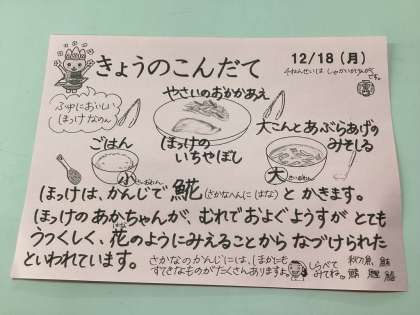 きょうのこんだて
12/18(月)
4ねんせいは しゃかいかけんがく
です。
ふゆにおいしい
ほっけなのん
やさいのおかかあえ
ごはん
ほっけの
いちやぼし
大こんとあぶらあげの
みそしる
小
大
ほっけは、かんじで𩸽(さかなへんに はな)と かきます。
ほっけの あかちゃんが、むれでおよぐようすが とても
うつくしく、花のようにみえることから なづけられた
はな
といわれています。
さかなのかんじには、ほかにも
すてきなものがたくさんありますよ。
しらべて
みてね。